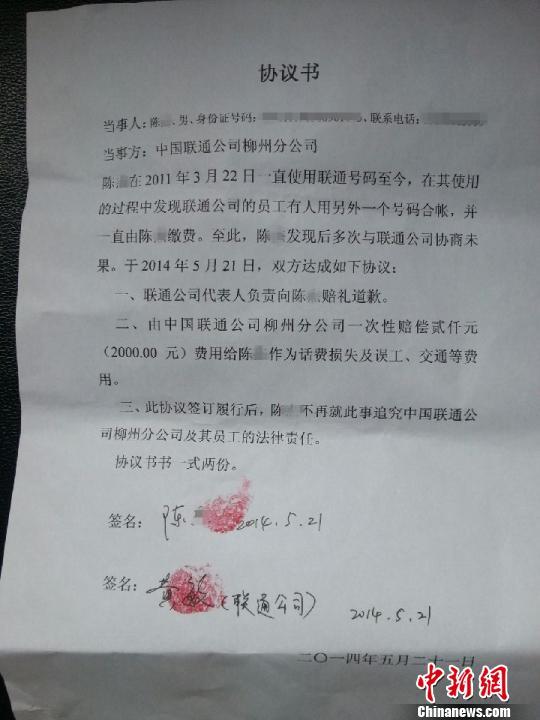 协议书
当事人：陈、男、身份证号码：、联系电话：
当事方：中国联通公司柳州分公司
陈在2011年3月22日一直使用联通号码至今，在其使用
的过程中发现联通公司的员工有人用另外一个号码合帐，并
一直由陈缴费。至此，陈发现后多次与联通公司协商未
果。于2014年5月21日，双方达成如下协议：
一、联通公司代表人负责向陈赔礼道歉。
二、由中国联通公司柳州分公司一次性赔偿贰仟元
（2000.00元）费用给陈作为话费损失及误工、交通等费
用。
三、此协议签订履行后，陈不再就此事追究中国联通公
司柳州分公司及其员工的法律责任。
协议书书一式两份。
签名：陈 2014.5.21
签名：黄（联通公司） 2014.5.21
二〇一四年五月二十一日
中新网
Chinanews.com